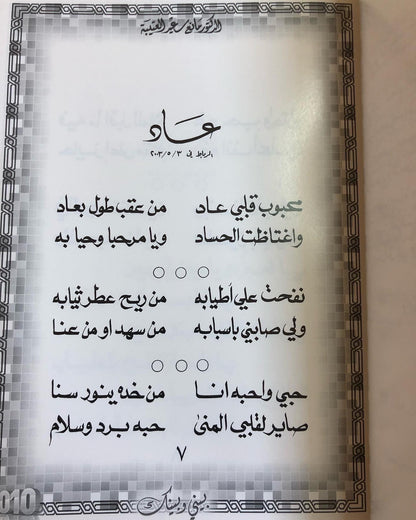 الدكتور مانع سعيد العتيبة
عاد
الرباط في ٢٠٠٣/٥/٣
محبوب قلبي عاد من عقب طول بعاد
واغتاظت الحساد ويا مرحبا وحيا به
نفحت علي أطيابه من ريح عطر ثيابه
ولي صابني باسبابه من سهد او من عنا
حبي واحبه انا من خده ينور سنا
صاير لقلبي المنى حبه برد وسلام
٧
بيني وبينك
010